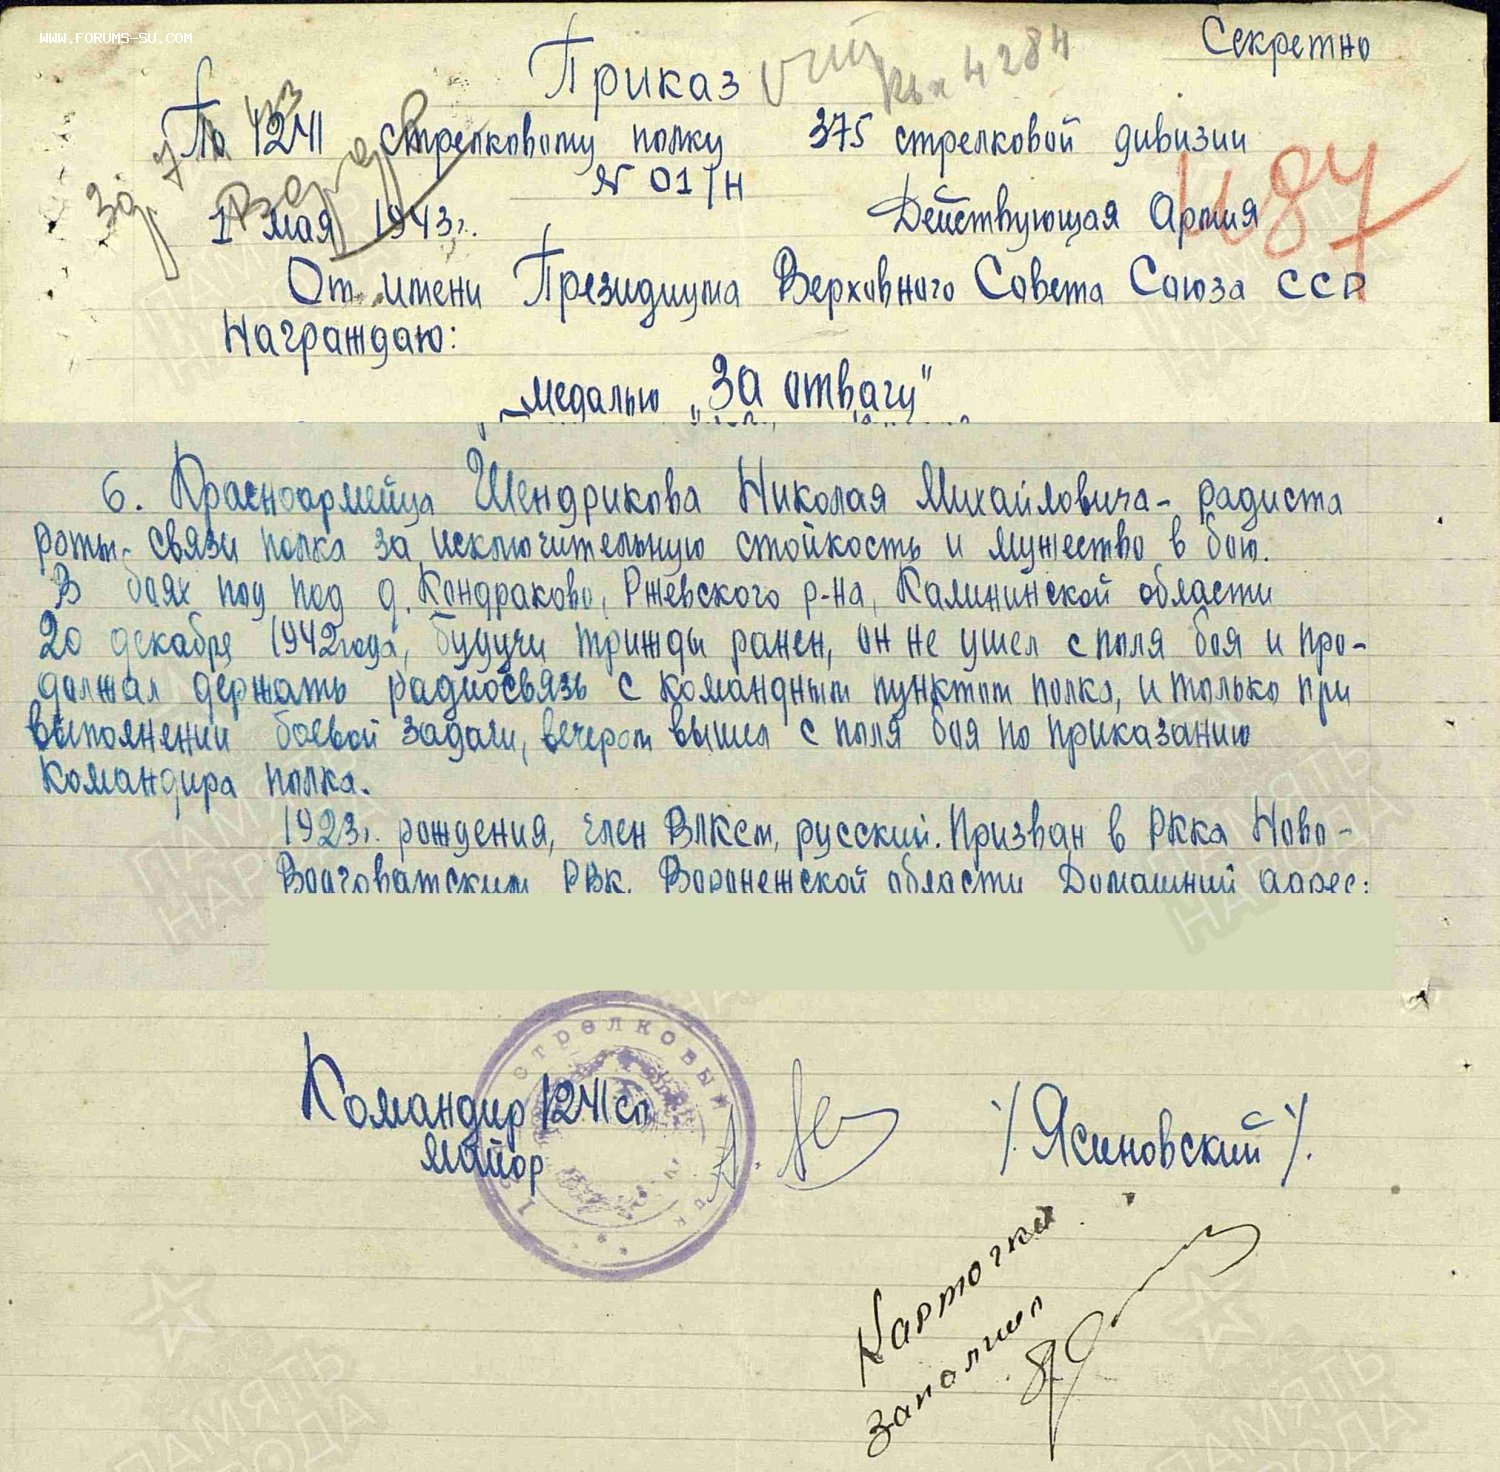 WWW.FORUMS-SU.COM
Секретно
Приказ
Вх 4284
По 1241 стрелковому полку 375 стрелковой дивизии
№ 01/Н
487
1 мая 1943г. Действующая Армия
От имени Президиума Верховного Совета Союза ССР
Награждаю:
медалью „За отвагу"
6. Красноармейца Шендрикова Николая Михайловича - радиста
роты связи полка за исключительную стойкость и мужество в бою.
В боях под под д. Кондраково, Ржевского р-на, Калининской области
20 декабря 1942 года, будучи трижды ранен, он не ушел с поля боя и про-
должал держать радиосвязь с командным пунктом полка, и только при
выполнении боевой задачи, вечером вышел с поля боя по приказанию
командира полка.
1923г. рождения, член ВЛКСМ, русский. Призван в РККА Ново-
РВК. Воронежской области Домашний адрес:
стрелковый полк
Командир 1241 сп
майор
/Ясиновский/.
Карточки
заполнил
ПАМЯТЬ
НАРОДА